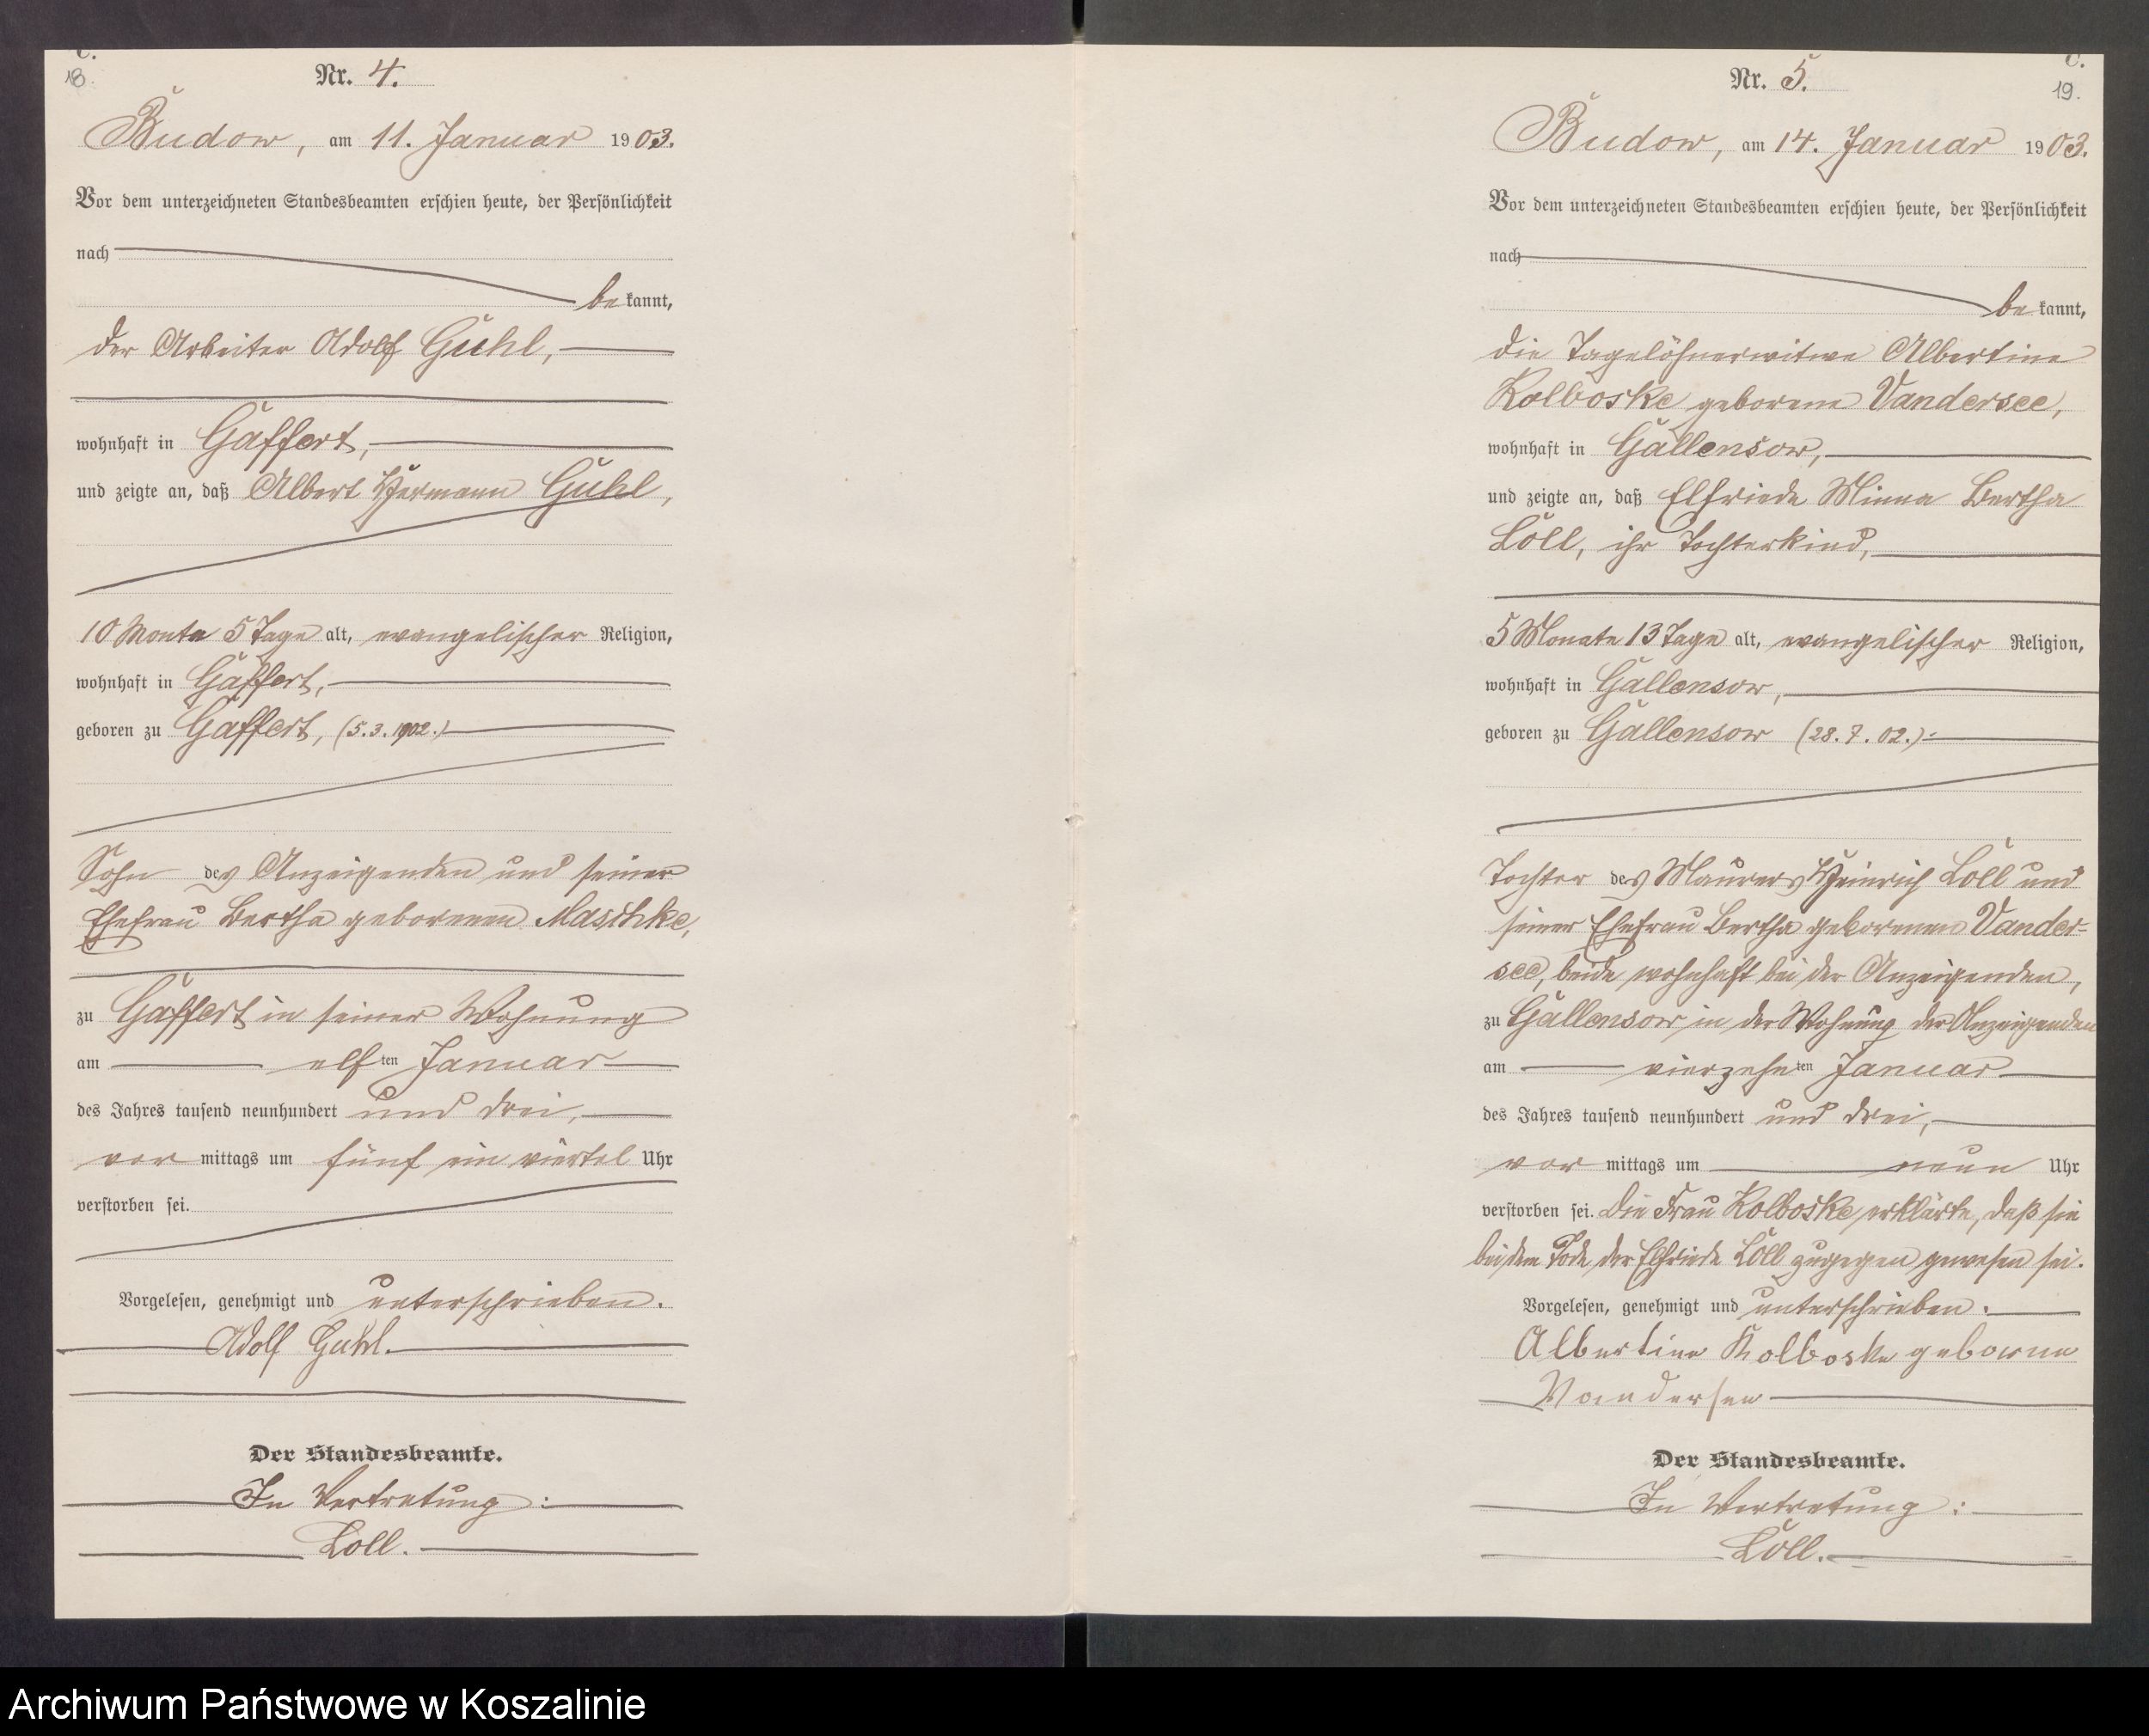 C.
18.
Nr. 4.
Budow, am 11. Januar 1903.
Vor dem unterzeichneten Standesbeamten erschien heute, der Persönlichkeit
nach
bekannt,
der Arbeiter Adolf Guhl,
wohnhaft in Gaffert,
und zeigte an, daß Albert Hermann Guhl,
10 Monte 5 Tage alt, evangelischer Religion,
wohnhaft in Gaffert,
geboren zu Gaffert, (5.3.1902.)
Sohn des Anzeigenden und seiner
Ehefrau Bertha geborenen Maschke,
zu Gaffert in seiner Wohnung
am elften Januar
des Jahres tausend neunhundert und drei,
vormittags um fünf ein viertel Uhr
verstorben sei.
Vorgelesen, genehmigt und unterschrieben.
Adolf Guhl.
Der Standesbeamte.
In Vertretung:
Loll.
C.
19.
Nr. 5.
Budow, am 14. Januar 1903.
Vor dem unterzeichneten Standesbeamten erschien heute, der Persönlichkeit
nach
bekannt,
die Tagelöhnerwitwe Albertine
Kolboske geborene Vandersee,
wohnhaft in Gallensow,
und zeigte an, daß Elfriede Minna Bertha
Loll, ihr Tochterkind,
5 Monate 13 Tage alt, evangelischer Religion,
wohnhaft in Gallensow,
geboren zu Gallensow (28.7.02.)
Tochter des Maurers Heinrich Loll und
seiner Ehefrau Bertha geborenen Vander-
see, beide wohnhaft bei der Anzeigenden,
zu Gallensow in der Wohnung der Anzeigenden
am vierzehnten Januar
des Jahres tausend neunhundert und drei,
vormittags um neun Uhr
verstorben sei. Die Frau Kolboske erklärte, daß sie
bei dem Tode der Elfriede Loll zugegen gewesen sei.
Vorgelesen, genehmigt und unterschrieben.
Albertine Kolboske geborne
Vandersee
Der Standesbeamte.
In Vertretung:
Loll.
Archiwum Państwowe w Koszalinie